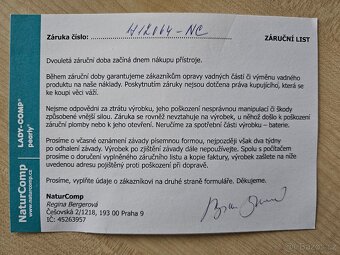 Záruka číslo: 412064-NC ZÁRUČNÍ LIST
Dvouletá záruční doba začíná dnem nákupu přístroje.
Během záruční doby garantujeme zákazníkům opravy vadných částí či výměnu vadného
produktu na naše náklady. Poskytnutím záruky nejsou dotčena práva kupujícího, která se
ke koupi věci váží.
Nejsme odpovědni za ztrátu výrobku, jeho poškození nesprávnou manipulací či škody
způsobené vnější silou. Záruka se rovněž nevztahuje na výrobek, u něhož došlo k poškození
záruční plomby nebo k jeho otevření. Neručíme za spotřební části výrobku – baterie.
Prosíme o včasné oznámení závady písemnou formou, nejlépe však jako dva týdny
po odhalení závady. Výrobek po zjištění závady dále nepoužívejte. Spolu s počátkem
prosíme o doručení vyplněného záručního listu a kopie faktury, výrobek zašlete na níže
uvedenou adresu pojištěný proti poškození při dopravě.
Prosíme, vyplňte údaje o zákazníkovi na druhé straně formuláře. Děkujeme.
NaturComp
Regina Bergerová
Češovská 2/1218, 193 00 Praha 9
IČ: 45263957
NaturComp
www.naturcomp.cz
LADY-COMP®
pearly®